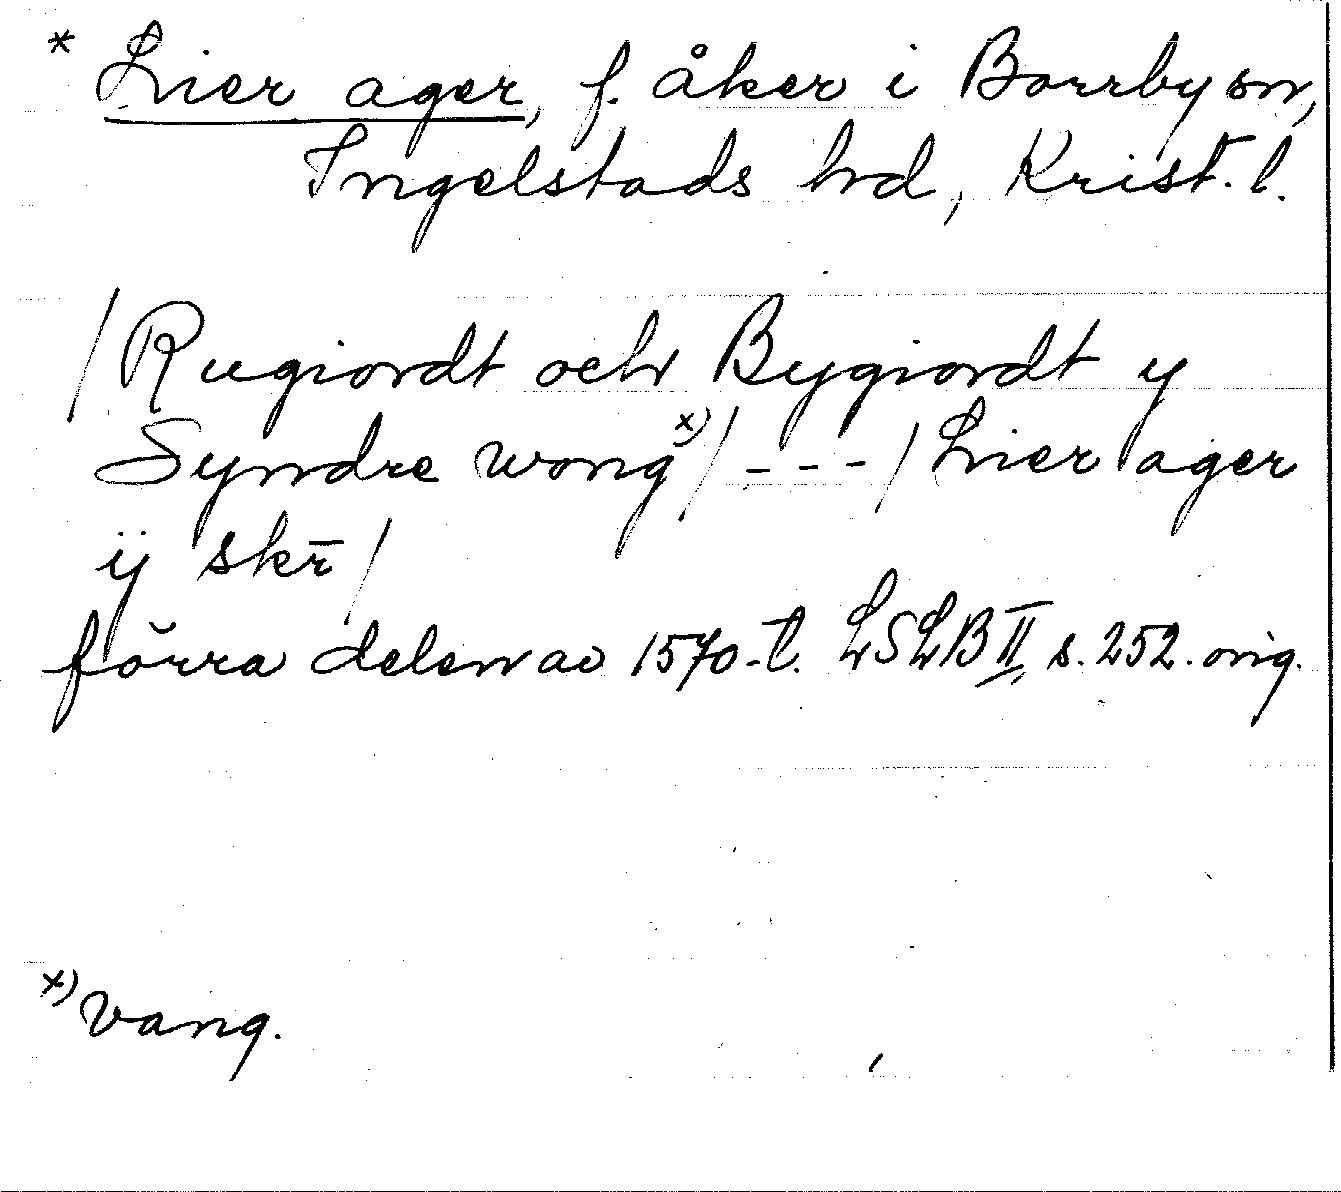 * Lier ager, f. åker i Borrby sn,
Ingelstads hd, Krist. l.
/Rugiordt och Bygiordt y
Syndre wong x)/ --- /Lier ager
ÿ skr̄/
förra delen av 1570-t. LSLB II, s. 252. orig.
x) vang.